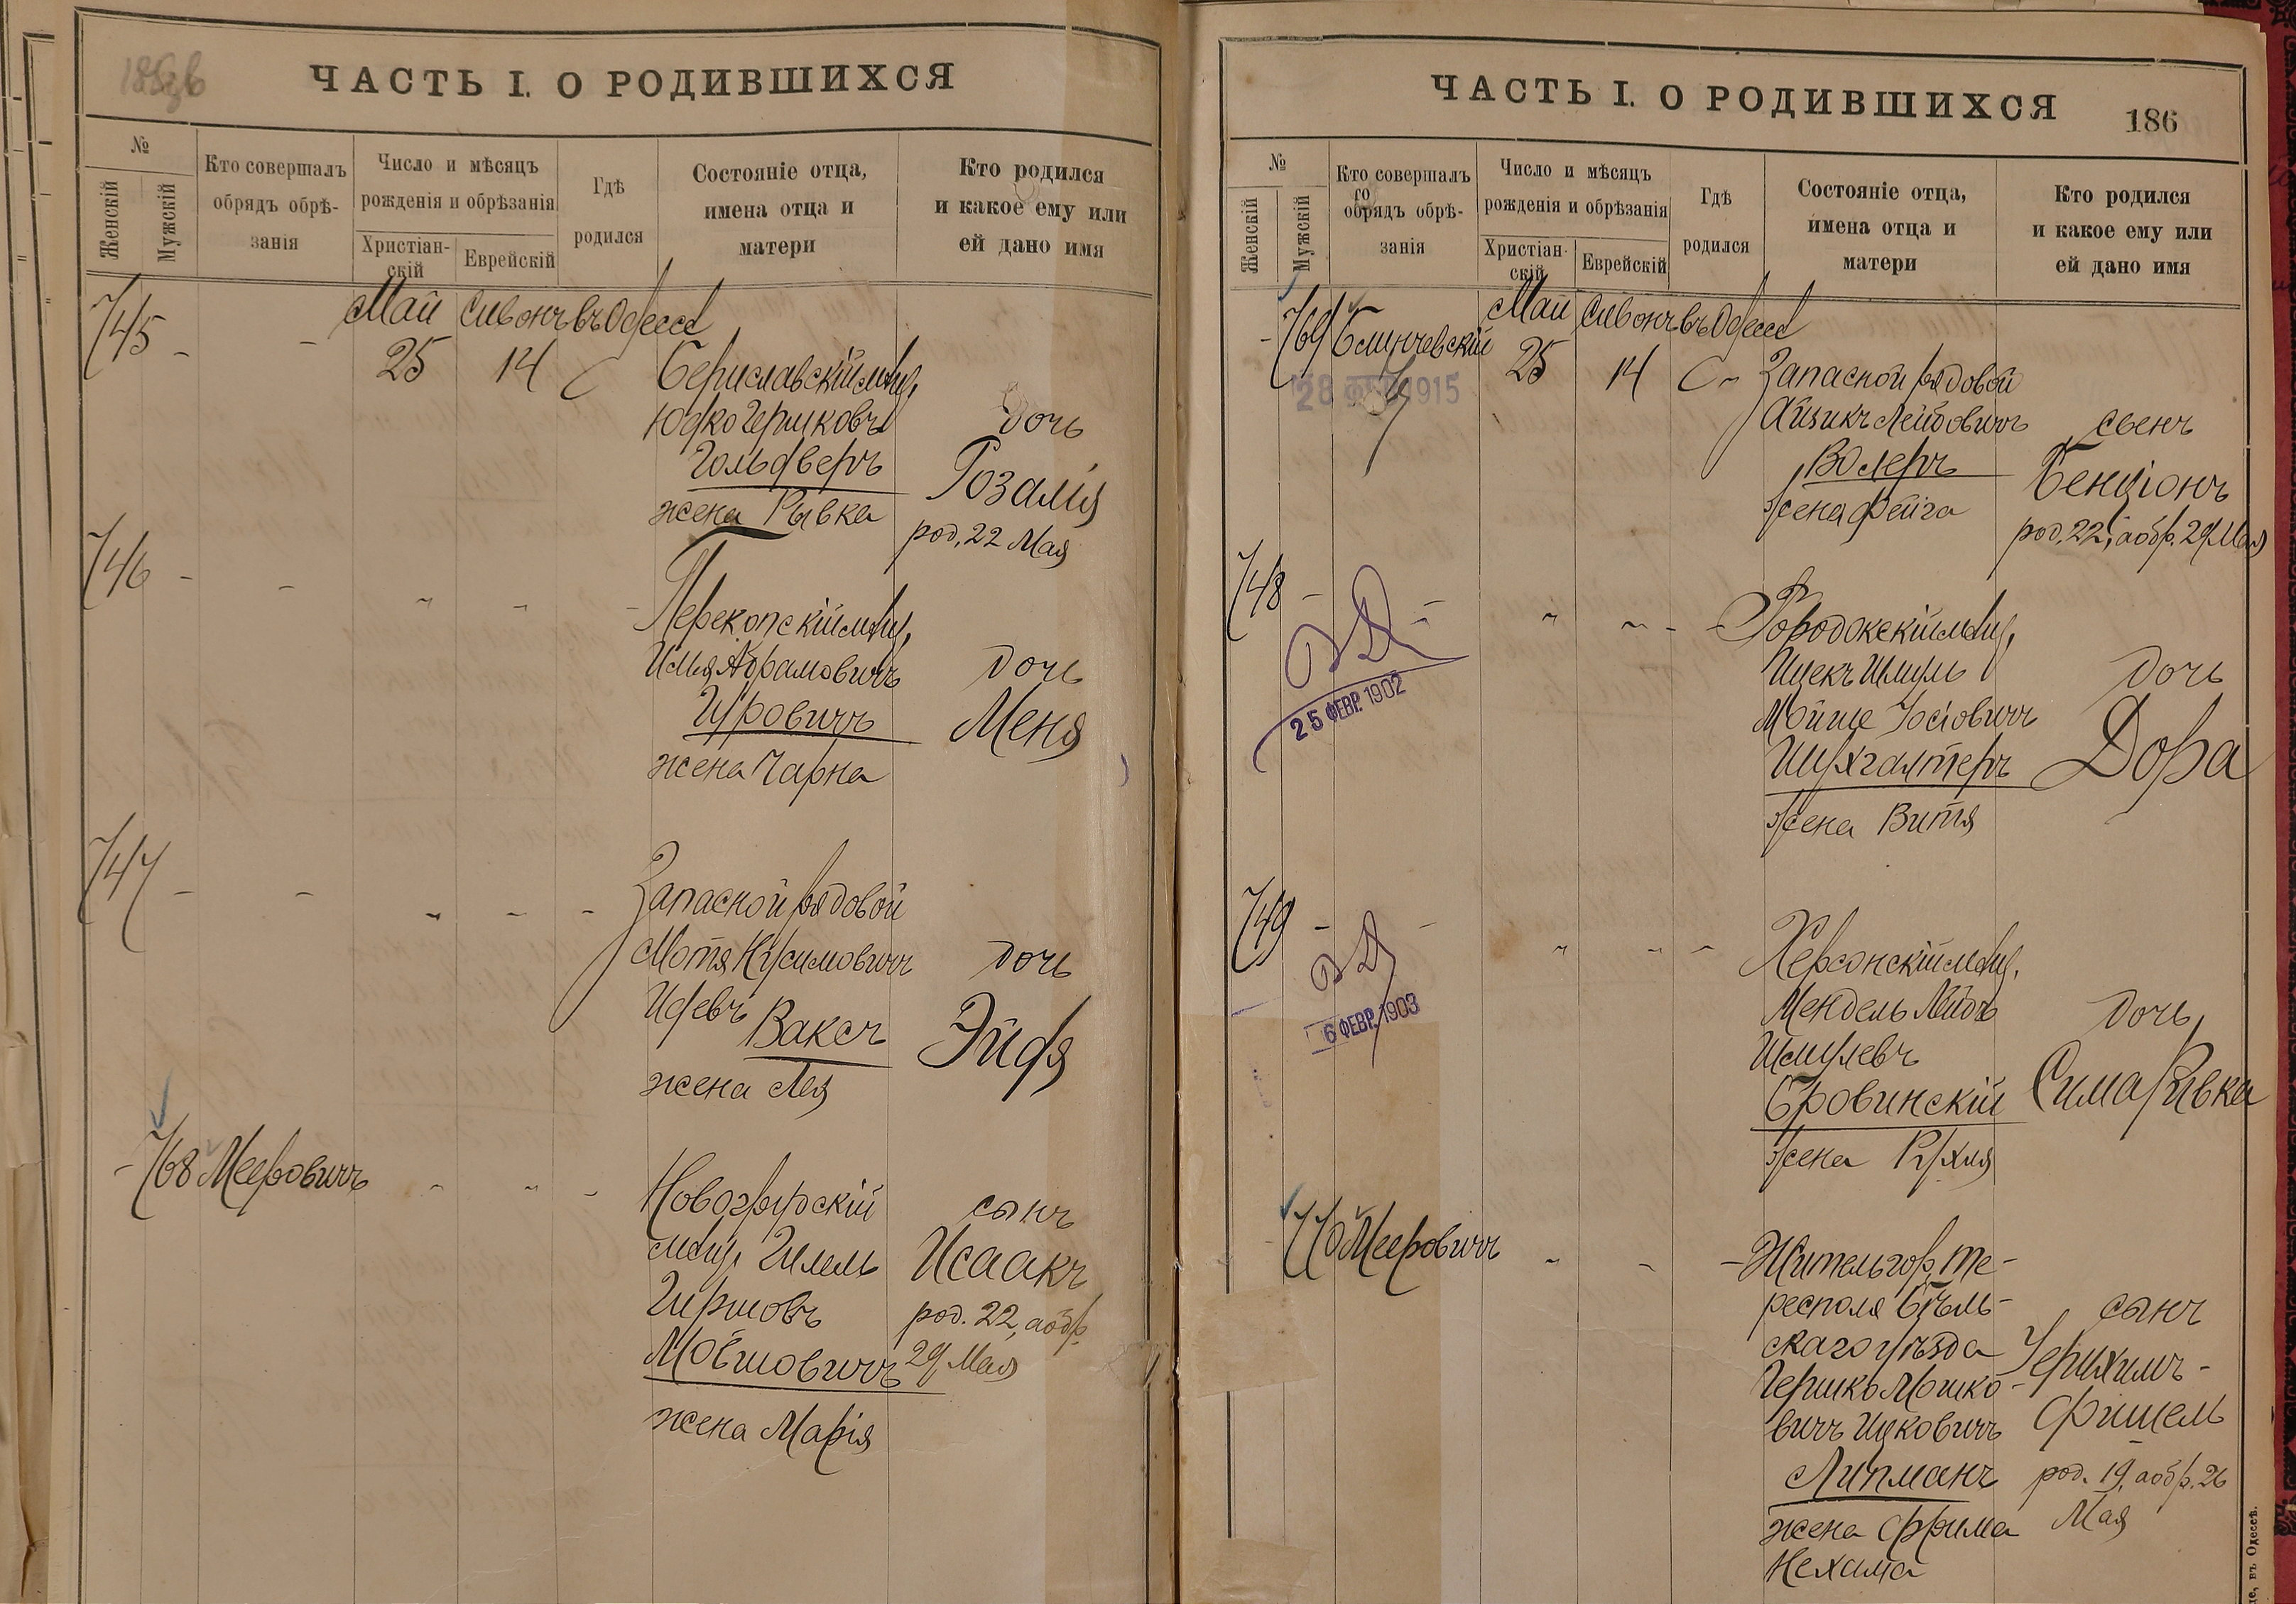 185 зв
ЧАСТЬ I. О РОДИВШИХСЯ
№
Женскій
Мужскій
Кто совершалъ
обрядъ обрѣ-
занія
Число и мѣсяцъ
рожденія и обрѣзанія
Христіан-
скій
Еврейскій
Гдѣ
родился
Состояніе отца,
имена отца и
матери
Кто родился
и какое ему или
ей дано имя
745 - -
Май Сивонъ въ Одессѣ
25 14
Бериславскій мѣщ,
Юдко Гершковъ
Гольдверъ
жена Рывка
дочь
Розалія
род. 22 Мая
746 - -
Перекопскій мѣщ,
Илья Абрамовичъ
Гуровичъ
жена Чарна
дочь
Меня
747 - -
Запасной рядовой
Мотя Нусимовичъ
Ваксъ
жена Лея
дочь
Эйдя
- 768 Мееровичъ
Новогрудскій
мѣщ Гилель
Гиршовъ
Мовшовичъ
жена Марія
сынъ
Исаакъ
род. 22, а обр.
29 Мая
ЧАСТЬ I. О РОДИВШИХСЯ
186
№
Женскій
Мужскій
Кто совершалъ
обрядъ обрѣ-
занія
Число и мѣсяцъ
рожденія и обрѣзанія
Христіан-
скій
Еврейскій
Гдѣ
родился
Состояніе отца,
имена отца и
матери
Кто родился
и какое ему или
ей дано имя
- 769 Блинчевскій
28 ФЕВ 1915
Май Сивонъ въ Одессѣ
25 14
Запасной рядовой
Айзикъ Лейбовичъ
Волеръ
жена Фейга
сынъ
Бенціонъ
род. 22, а обр. 29 Мая
748 - -
25 ФЕВР. 1902
Городокскій мѣщ,
Ицекъ Шмуль
Мойше Іосіовичъ
Шухгалтеръ
жена Витя
дочь
Дора
749 - -
6 ФЕВР. 1903
Херсонскій мѣщ.
Мендель Лейбъ
Шмулевъ
Бровинскій
жена Рухля
дочь
Сима Ривка
- 770 Мееровичъ
Житель гор. Те-
респоля Бѣль-
скаго уѣзда
Гершко Мошко-
вичъ Ицковичъ
Липманъ
жена Фрима
Нехама
сынъ
Іерихимъ-
Фишель
род. 19, а обр. 26
Мая
въ Одессѣ.